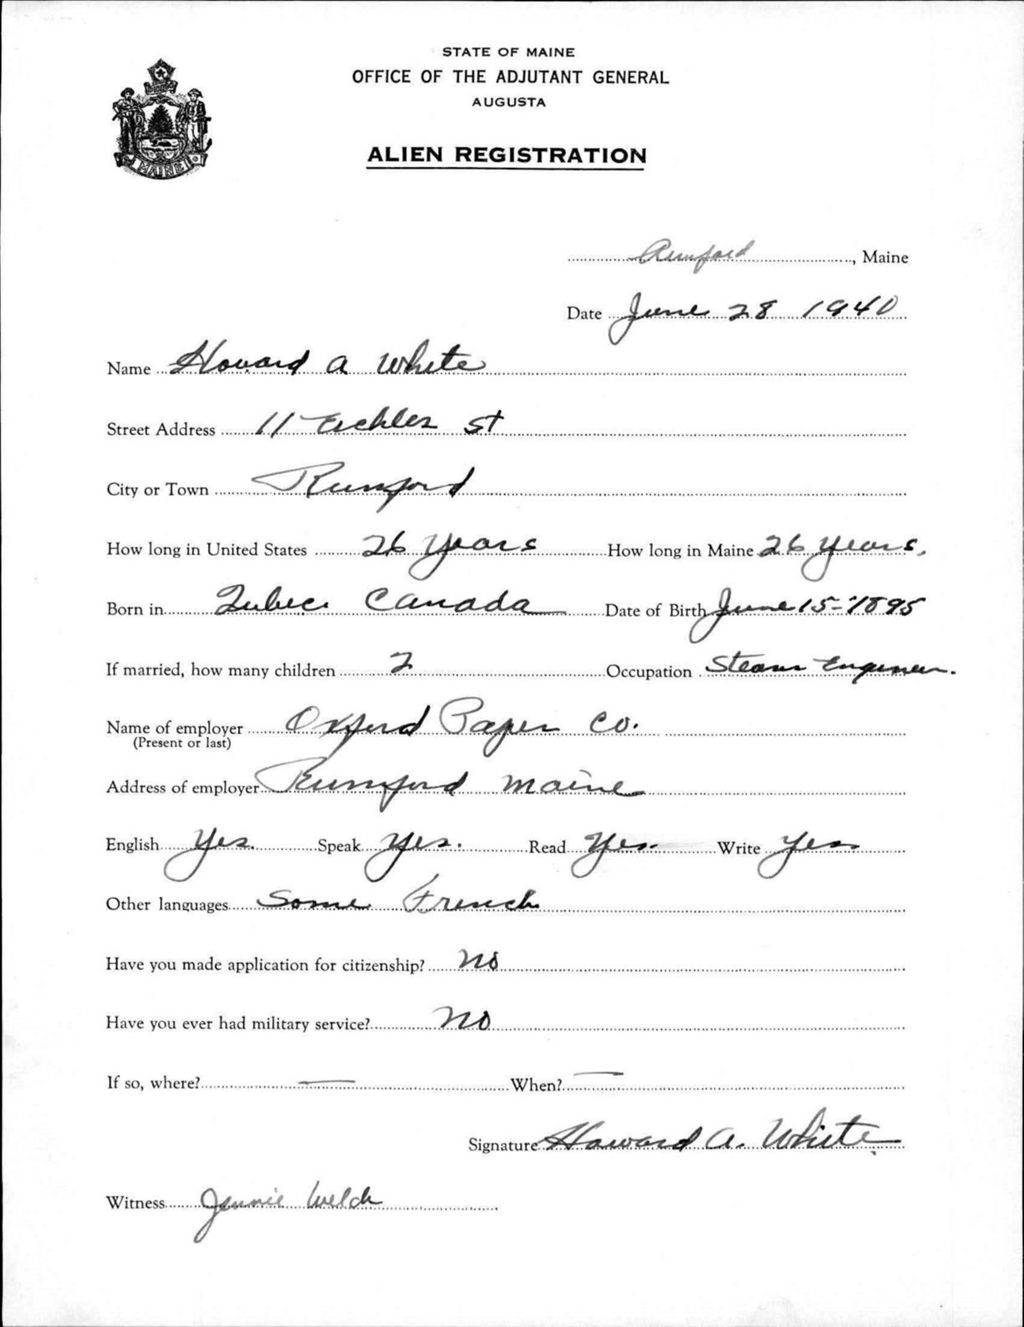 STATE OF MAINE
OFFICE OF THE ADJUTANT GENERAL
AUGUSTA
ALIEN REGISTRATION
MAINE
Rumford, Maine
Date June 28 1940
Name Howard A White
Street Address 11 Eichler St
City or Town Rumford
How long in United States 26 Years How long in Maine 26 years.
Born in Qubec Canada Date of Birth June 15-1895
If married, how many children 2 Occupation Steam Engineer.
Name of employer Oxford Paper Co.
(Present or last)
Address of employer Rumford Maine
English Yes. Speak Yes. Read Yes Write Yes
Other languages Some French
Have you made application for citizenship? No
Have you ever had military service? No
If so, where? — When? —
Signature Howard A. White
Witness Jennie Welch